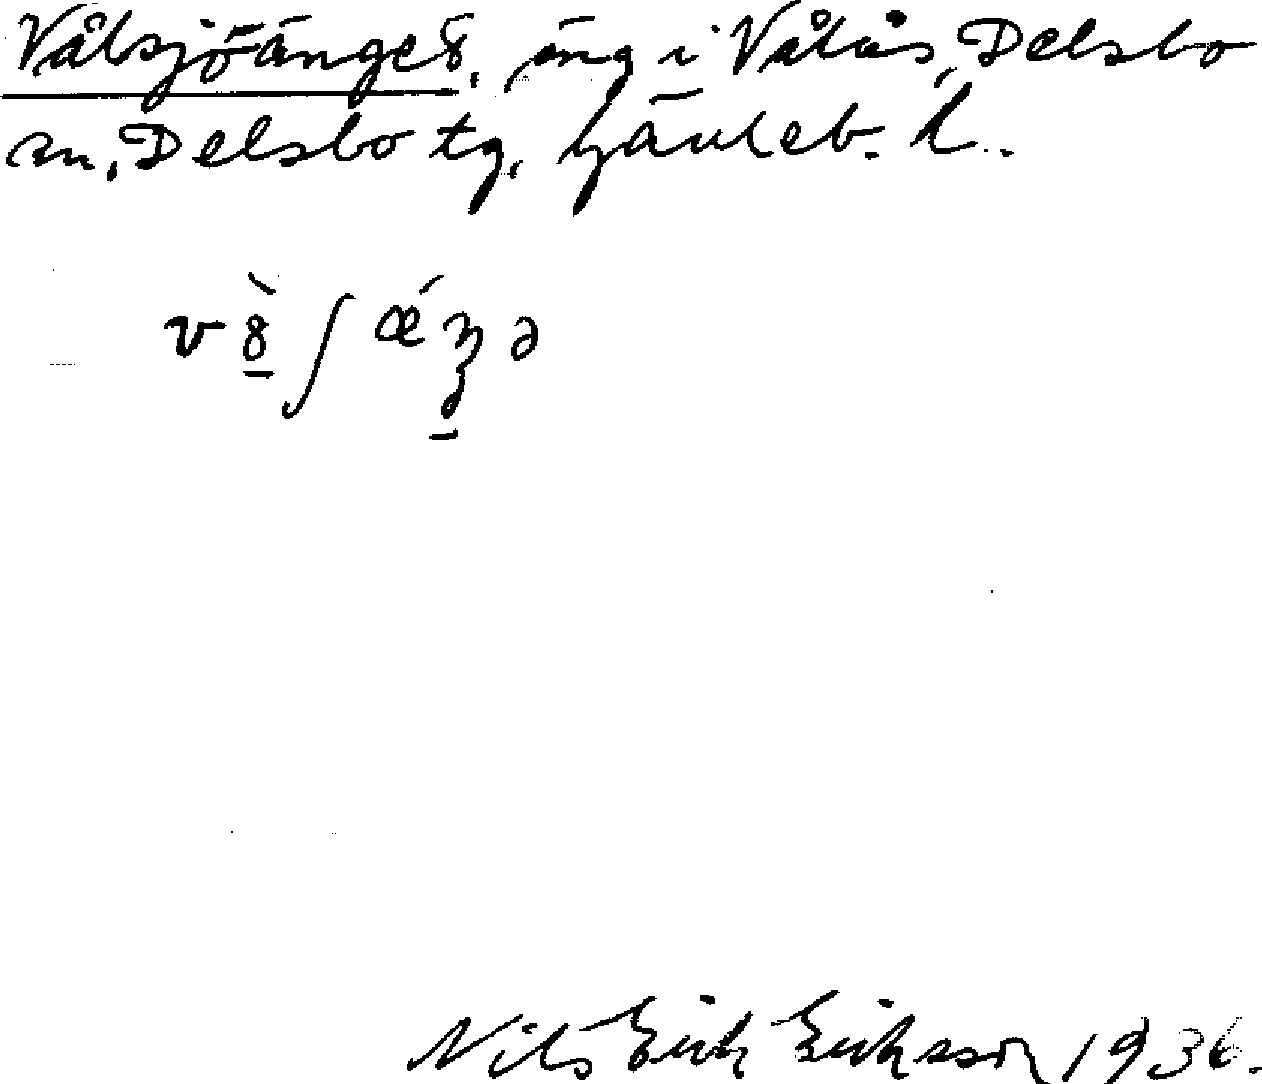 Vålsjöänget, äng i Våtås, Delsbo
sn, Delsbo tg, Gävleb. l.
Nils Erik Eriksson 1936.